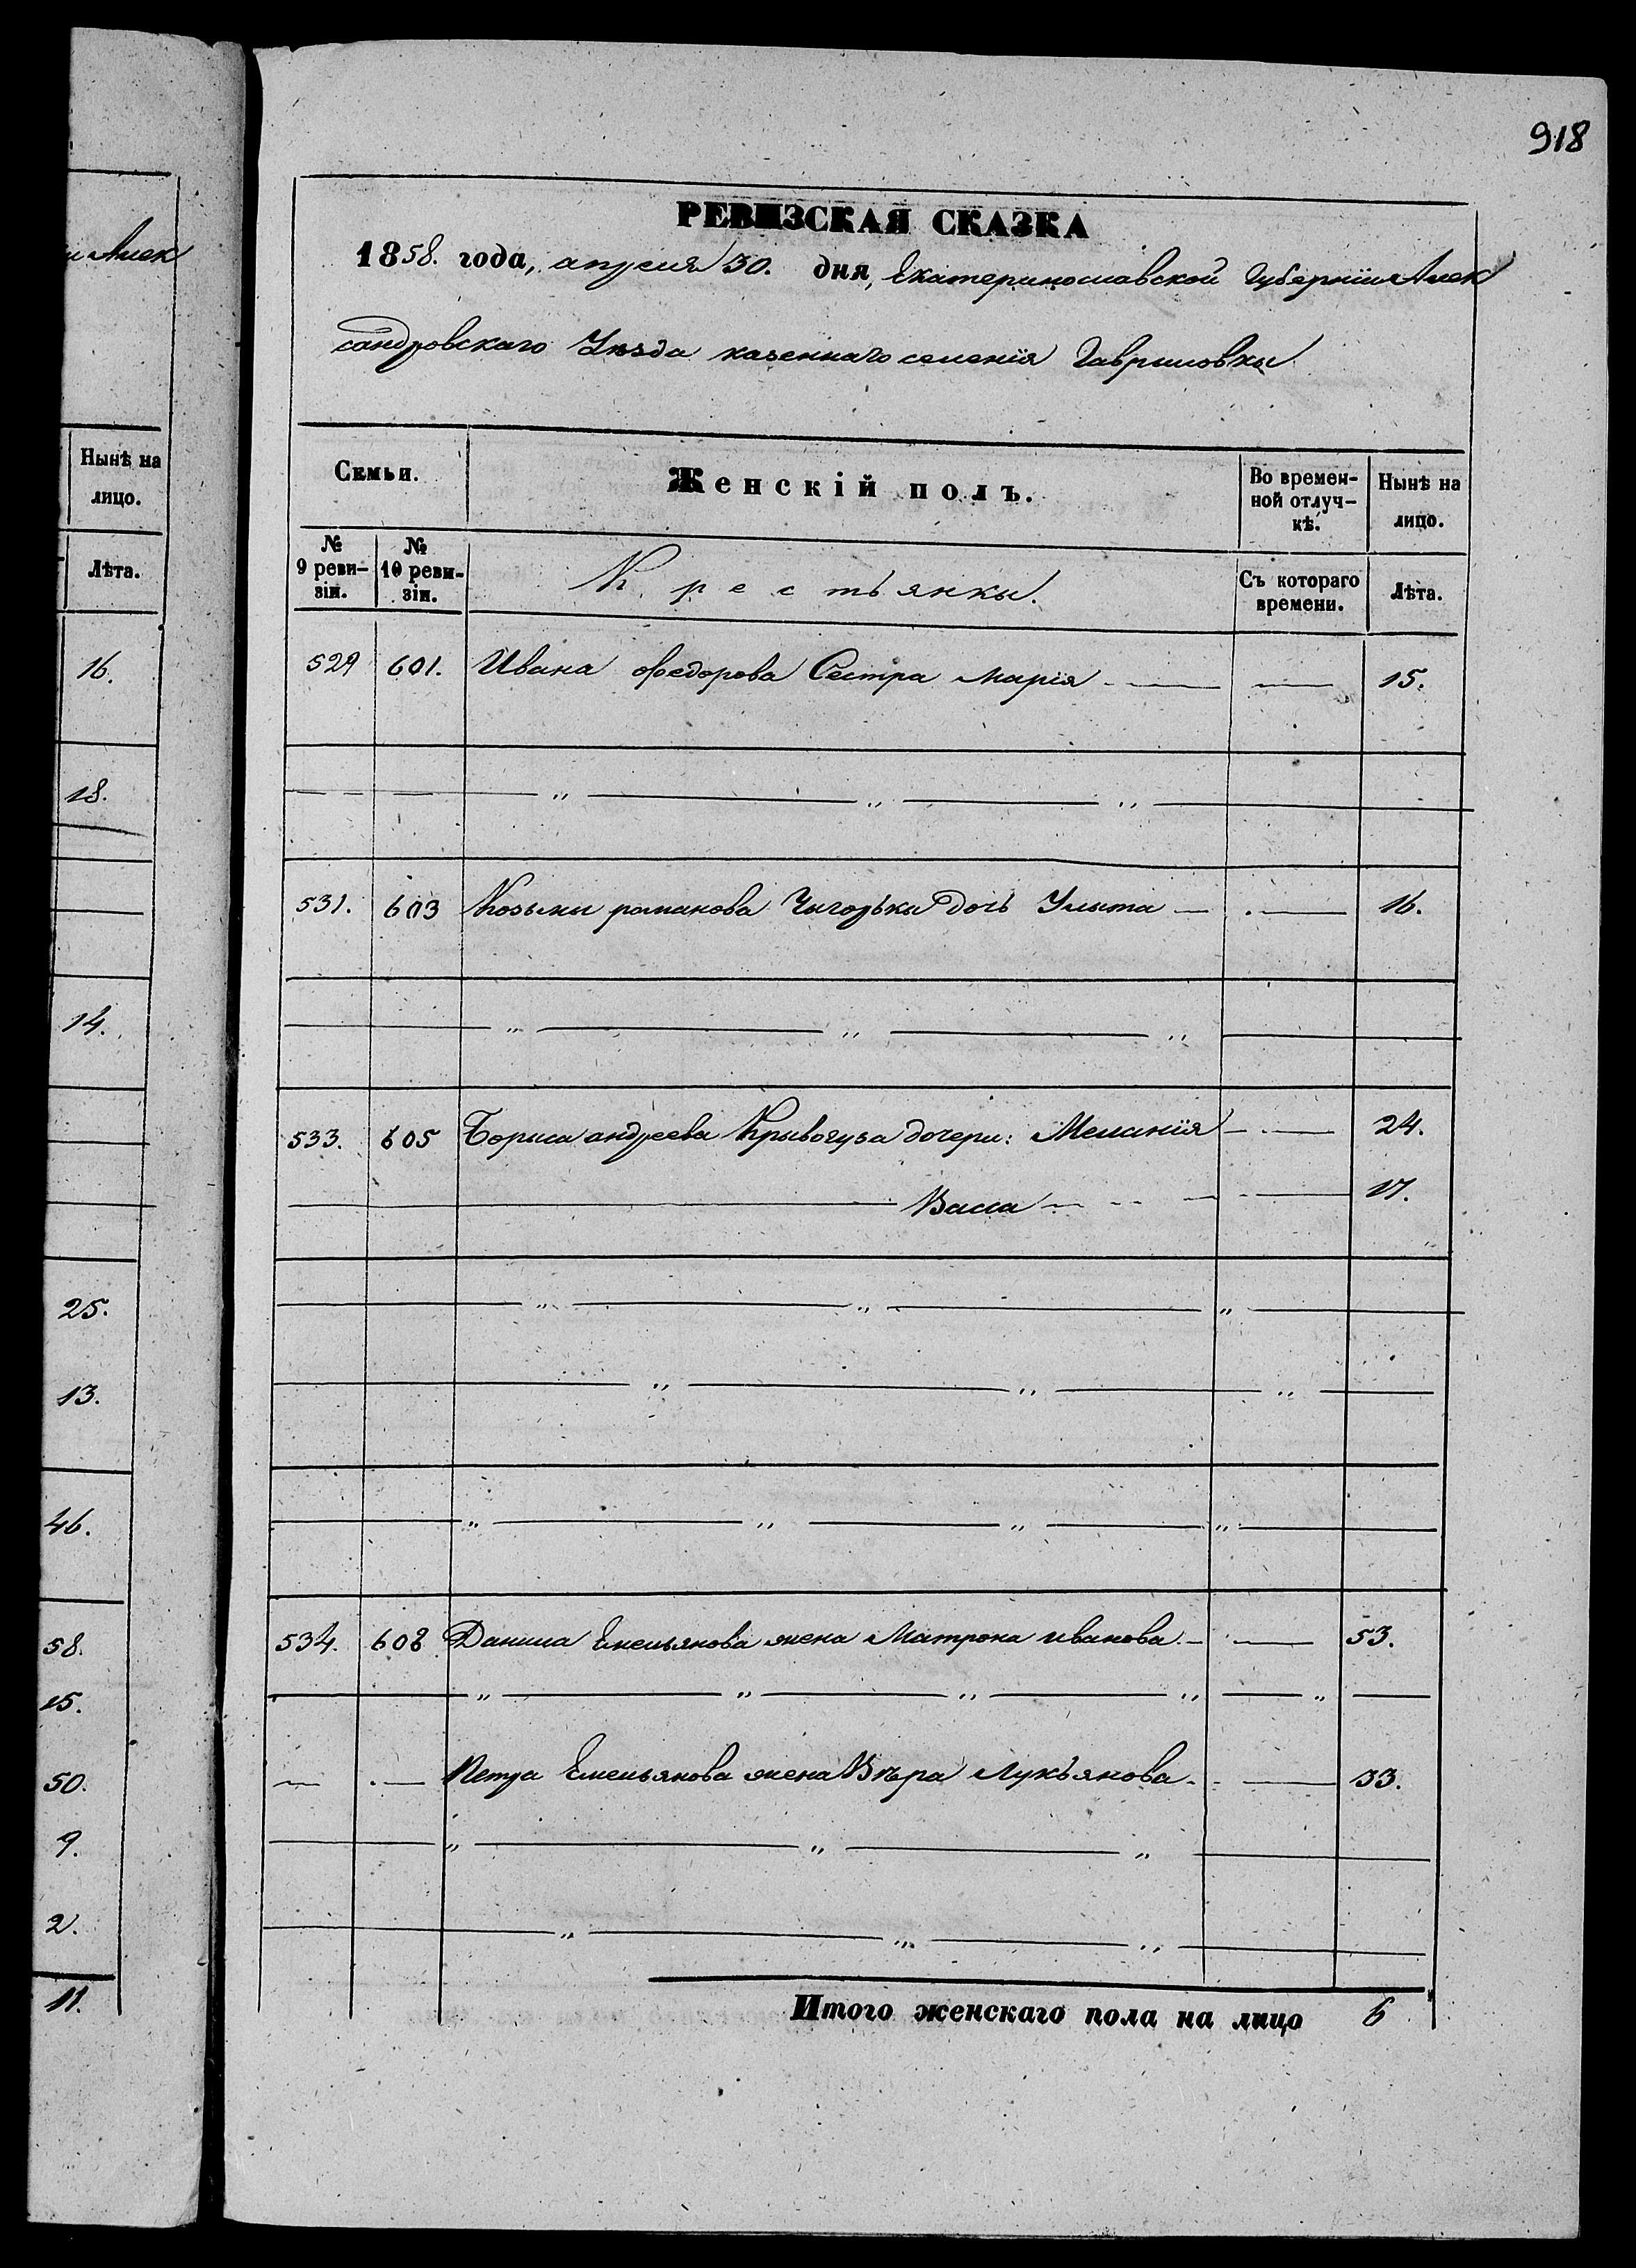 918
РЕВИЗСКАЯ СКАЗКА
1858. года, апреля 30. дня, Екатеринославской Губерніи Алек
сандровскаго Уѣзда казеннаго селенія Гавриловки
Семьи.
Женскій полъ.
Во времен-
ной отлуч-
кѣ.
Нынѣ на
лицо.
№
9 реви-
зіи.
№
10 реви-
зіи.
Крестьянки.
Съ котораго
времени.
Лѣта.
529 601. Ивана Федорова Сестра Марія 15.
531. 603 Козьмы романова дочь Улита 16.
533. 605 Бориса андреева Кривогуза дочери: Меланія 24.
Васса 17.
534. 608 Данила Емельянова жена Матрона иванова 53.
Петра Емельянова жена Вѣра Лукьянова 33.
Итого женскаго пола на лицо 6
и Алек
Нынѣ на
лицо.
Лѣта.
16.
18.
14.
25.
13.
46.
58.
15.
50.
9.
2.
11.